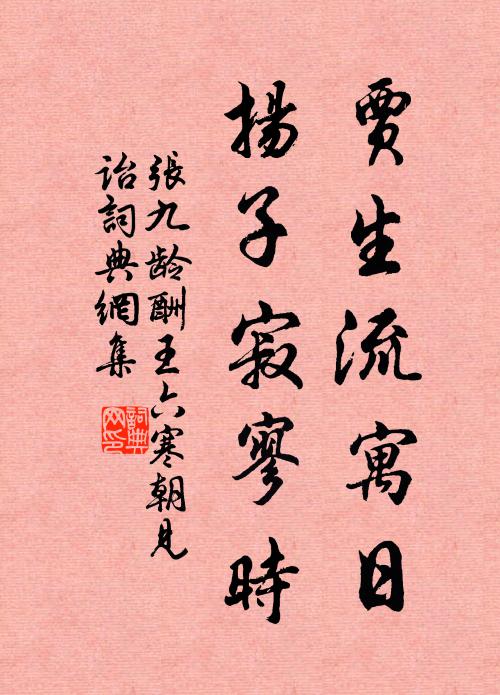 賈生流寓日
揚子寂寥時
張九龄酬王六寒朝見
詒詞典網集
詞典网印